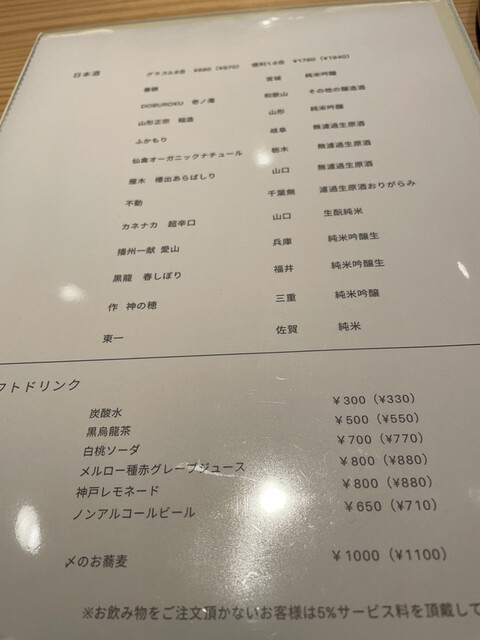 日本酒 グラス0.8合 ¥880（¥970） 徳利1.6合 ¥1760（¥1940）
宮城 純米吟醸
DOBUROKU 壱ノ庵 和歌山 その他の醸造酒
山形正宗 稲造 山形 純米吟醸
ふかもり 岐阜 無濾過生原酒
仙禽オーガニックナチュール 栃木 無濾過生原酒
雁木 槽出あらばしり 山口 無濾過生原酒
不動 千葉無 濾過生原酒おりがらみ
カネナカ 超辛口 山口 生酛純米
播州一献 愛山 兵庫 純米吟醸生
黒龍 春しぼり 福井 純米吟醸生
作 神の穂 三重 純米吟醸
東一 佐賀 純米
フトドリンク
炭酸水 ¥300（¥330）
黒烏龍茶 ¥500（¥550）
白桃ソーダ ¥700（¥770）
メルロー種赤グレープジュース ¥800（¥880）
神戸レモネード ¥800（¥880）
ノンアルコールビール ¥650（¥710）
〆のお蕎麦 ¥1000（¥1100）
※お飲み物をご注文頂かないお客様は5%サービス料を頂戴して